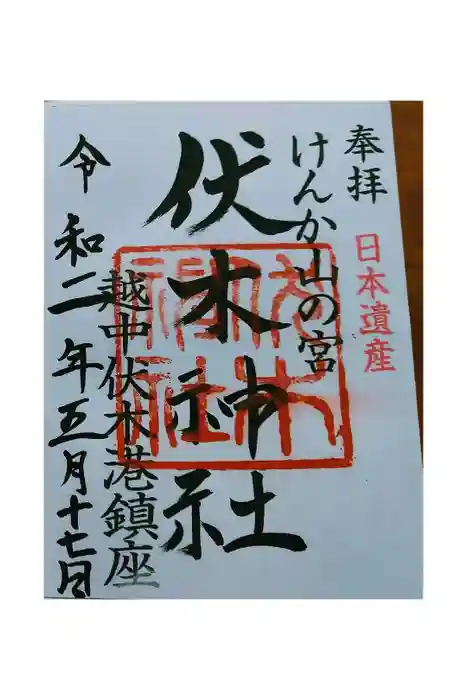 奉拝
日本遺産
けんか山の宮
伏木神社
越中伏木港鎮座
令和二年五月十七日